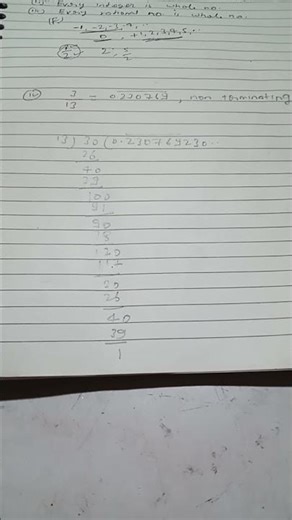 (ii) Every integer is whole no.
(iii) Every rational no is whole no.
(F)
-1, -2, -3, 4, ...
0, +1, 2, 3, 4, 5, ...
2, 5/2
(iv) 3/13 = 0.230769, non terminating
13) 30 (0.230769230..
26
40
39
100
91
90
120
117
30
26
40
39
1